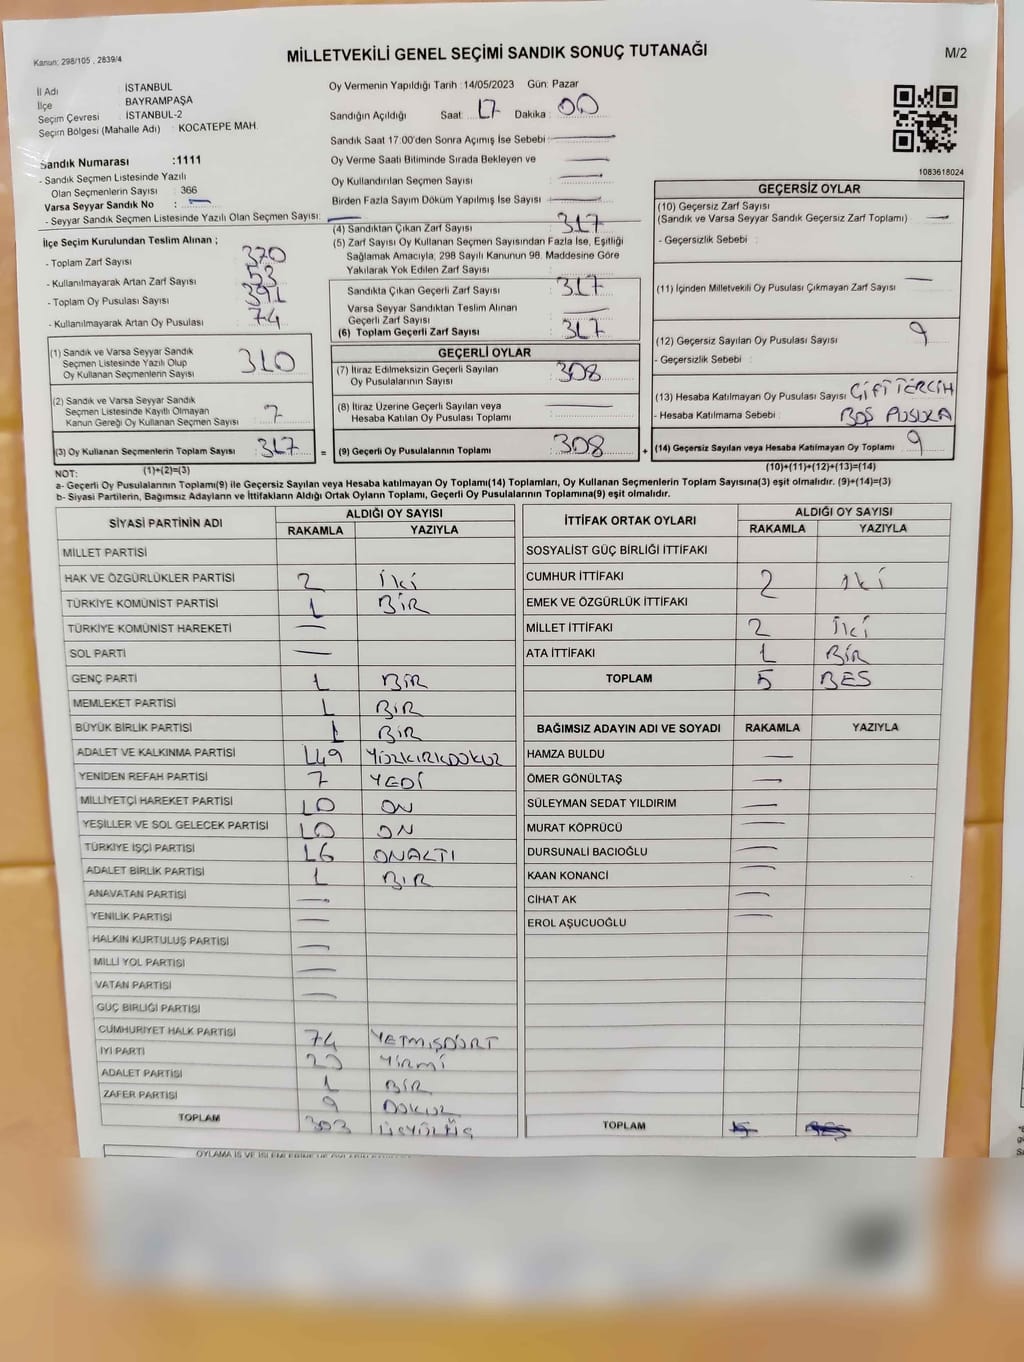 Kanun: 298/105 , 2839/4
MİLLETVEKİLİ GENEL SEÇİMİ SANDIK SONUÇ TUTANAĞI
M/2
İl Adı İSTANBUL
İlçe BAYRAMPAŞA
Seçim Çevresi İSTANBUL-2
Seçim Bölgesi (Mahalle Adı) : KOCATEPE MAH.
Sandık Numarası :1111
- Sandık Seçmen Listesinde Yazılı
Olan Seçmenlerin Sayısı : 366
Varsa Seyyar Sandık No : —
- Seyyar Sandık Seçmen Listesinde Yazılı Olan Seçmen Sayısı: —
Oy Vermenin Yapıldığı Tarih :14/05/2023 Gün: Pazar
Sandığın Açıldığı Saat: 17 Dakika: 00
Sandık Saat 17:00'den Sonra Açımış İse Sebebi: —
Oy Verme Saati Bitiminde Sırada Bekleyen ve —
Oy Kullandırılan Seçmen Sayısı : —
Birden Fazla Sayım Döküm Yapılmış İse Sayısı : —
1083618024
İlçe Seçim Kurulundan Teslim Alınan ;
- Toplam Zarf Sayısı : 370
- Kullanılmayarak Artan Zarf Sayısı : 53
- Toplam Oy Pusulası Sayısı : 391
- Kullanılmayarak Artan Oy Pusulası : 74
(1) Sandık ve Varsa Seyyar Sandık
Seçmen Listesinde Yazılı Olup
Oy Kullanan Seçmenlerin Sayısı : 310
(2) Sandık ve Varsa Seyyar Sandık
Seçmen Listesinde Kayıtlı Olmayan
Kanun Gereği Oy Kullanan Seçmen Sayısı : 7
(3) Oy Kullanan Seçmenlerin Toplam Sayısı : 317
(4) Sandıktan Çıkan Zarf Sayısı : 317
(5) Zarf Sayısı Oy Kullanan Seçmen Sayısından Fazla İse, Eşitliği
Sağlamak Amacıyla, 298 Sayılı Kanunun 98. Maddesine Göre
Yakılarak Yok Edilen Zarf Sayısı :
Sandıkta Çıkan Geçerli Zarf Sayısı : 317
Varsa Seyyar Sandıktan Teslim Alınan
Geçerli Zarf Sayısı : —
(6) Toplam Geçerli Zarf Sayısı : 317
GEÇERLİ OYLAR
(7) İtiraz Edilmeksizin Geçerli Sayılan
Oy Pusulalarının Sayısı : 308
(8) İtiraz Üzerine Geçerli Sayılan veya
Hesaba Katılan Oy Pusulası Toplamı : —
= (9) Geçerli Oy Pusulalarının Toplamı : 308
GEÇERSİZ OYLAR
(10) Geçersiz Zarf Sayısı
(Sandık ve Varsa Seyyar Sandık Geçersiz Zarf Toplamı) : —
- Geçersizlik Sebebi :
(11) İçinden Milletvekili Oy Pusulası Çıkmayan Zarf Sayısı : —
(12) Geçersiz Sayılan Oy Pusulası Sayısı : 9
- Geçersizlik Sebebi :
(13) Hesaba Katılmayan Oy Pusulası Sayısı : ÇİFT TERCİH
- Hesaba Katılmama Sebebi : BOŞ PUSULA
+ (14) Geçersiz Sayılan veya Hesaba Katılmayan Oy Toplamı : 9
NOT: (1)+(2)=(3)
(10)+(11)+(12)+(13)=(14)
a- Geçerli Oy Pusulalarının Toplamı(9) ile Geçersiz Sayılan veya Hesaba katılmayan Oy Toplamı(14) Toplamları, Oy Kullanan Seçmenlerin Toplam Sayısına(3) eşit olmalıdır. (9)+(14)=(3)
b- Siyasi Partilerin, Bağımsız Adayların ve İttifakların Aldığı Ortak Oyların Toplamı, Geçerli Oy Pusulalarının Toplamına(9) eşit olmalıdır.
SİYASİ PARTİNİN ADI ALDIĞI OY SAYISI
RAKAMLA YAZIYLA
MİLLET PARTİSİ
HAK VE ÖZGÜRLÜKLER PARTİSİ 2 İki
TÜRKİYE KOMÜNİST PARTİSİ 1 BİR
TÜRKİYE KOMÜNİST HAREKETİ —
SOL PARTİ —
GENÇ PARTİ 1 BİR
MEMLEKET PARTİSİ 1 BİR
BÜYÜK BİRLİK PARTİSİ 1 BİR
ADALET VE KALKINMA PARTİSİ 149 YÜZKIRKDOKUZ
YENİDEN REFAH PARTİSİ 7 YEDİ
MİLLİYETÇİ HAREKET PARTİSİ 10 ON
YEŞİLLER VE SOL GELECEK PARTİSİ 10 ON
TÜRKİYE İŞÇİ PARTİSİ 16 ONALTI
ADALET BİRLİK PARTİSİ 1 BİR
ANAVATAN PARTİSİ —
YENİLİK PARTİSİ —
HALKIN KURTULUŞ PARTİSİ —
MİLLİ YOL PARTİSİ —
VATAN PARTİSİ —
GÜÇ BİRLİĞİ PARTİSİ
CUMHURİYET HALK PARTİSİ 74 YETMİŞDÖRT
İYİ PARTİ 20 YİRMİ
ADALET PARTİSİ 1 BİR
ZAFER PARTİSİ 9 DOKUZ
TOPLAM 303 ÜÇYÜZÜÇ
İTTİFAK ORTAK OYLARI ALDIĞI OY SAYISI
RAKAMLA YAZIYLA
SOSYALİST GÜÇ BİRLİĞİ İTTİFAKI
CUMHUR İTTİFAKI 2 İki
EMEK VE ÖZGÜRLÜK İTTİFAKI
MİLLET İTTİFAKI 2 İki
ATA İTTİFAKI 1 BİR
TOPLAM 5 BES
BAĞIMSIZ ADAYIN ADI VE SOYADI RAKAMLA YAZIYLA
HAMZA BULDU —
ÖMER GÖNÜLTAŞ —
SÜLEYMAN SEDAT YILDIRIM —
MURAT KÖPRÜCÜ —
DURSUNALİ BACIOĞLU —
KAAN KONANCİ —
CİHAT AK —
EROL AŞUCUOĞLU —
TOPLAM